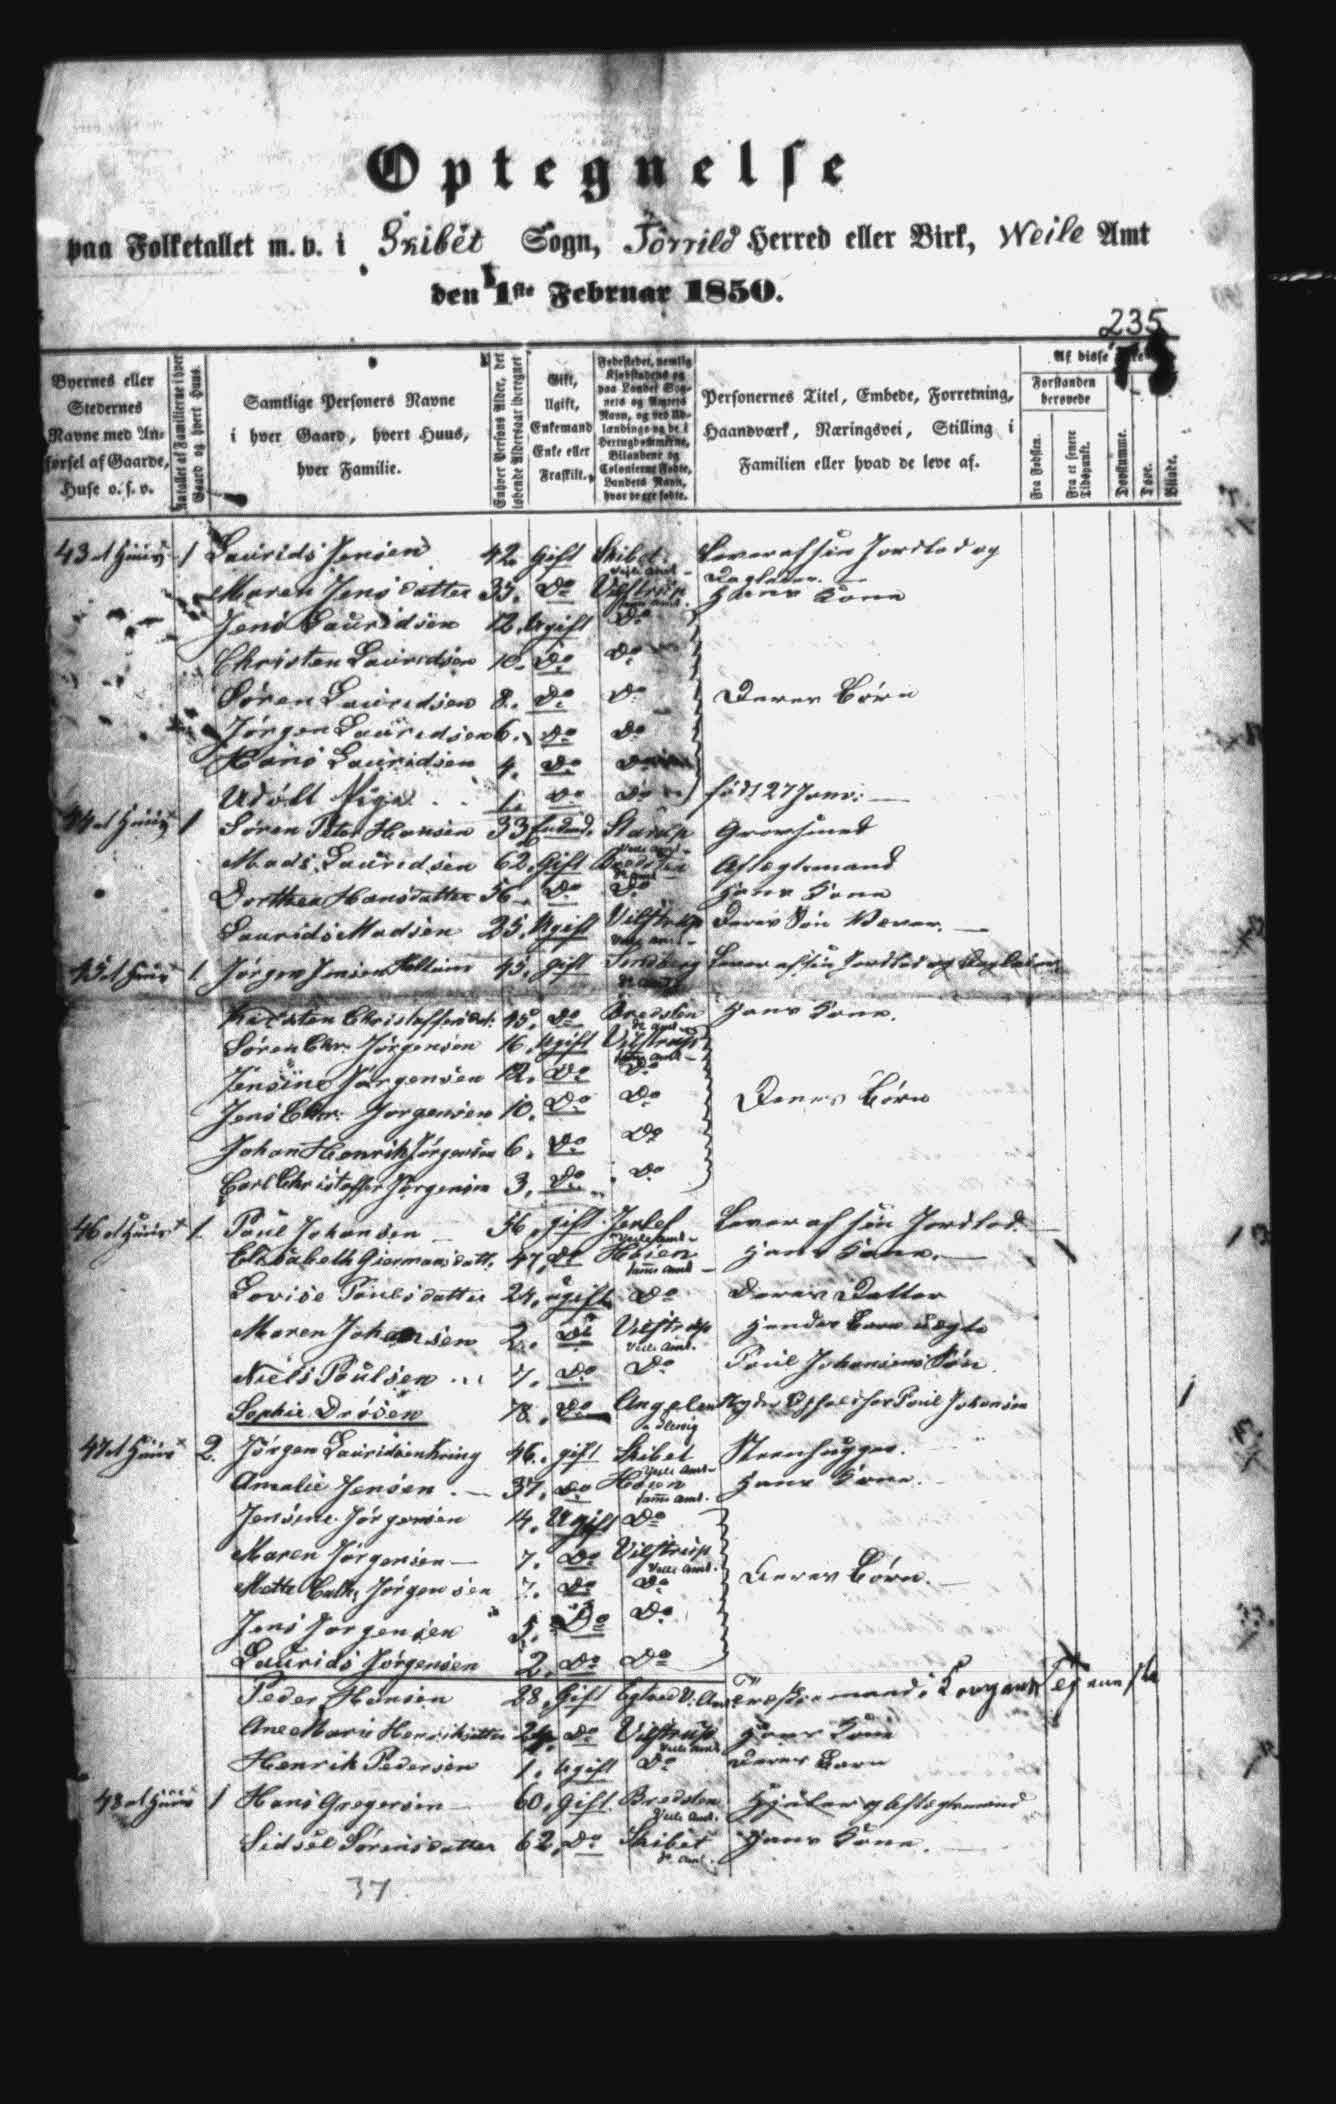 Optegnelse
paa Folketallet m. v. i Skibet Sogn, Törrild Herred eller Birk, Weile Amt
den 1ste Februar 1850.
235
Byernes eller Stedernes Navne med Anførsel af Gaarde, Huse o. s. v.
Antallet af Familierne i hver Gaard og hvert Huus.
Samtlige Personers Navne i hver Gaard, hvert Huus, hver Familie.
Enhver Persons Alder, det løbende Aldersaar iberegnet
Gift, Ugift, Enkemand Enke eller Fraskilt.
Fødestedet, nemlig Kjøbstadens og paa Landet Sognets og Amtets Navn, og ved Udlændinge og de i Hertugdømmerne, Bilandene og Colonierne Fødte, Landets Navn, hvor de ere fødte.
Personernes Titel, Embede, Forretning, Haandværk, Næringsvei, Stilling i Familien eller hvad de leve af.
Af disse ere
Forstanden berøvede
Fra Fødslen.
Fra et senere Tidspunkt.
Døvstumme.
Døve.
Blinde.
43 et Huus 1 Laurids Jensen 42. gift Skibet Veile Amt Lever af sin Jordlod og Dagleier.
Maren Jensdatter 35. Do Vilstrup samme Amt. Hans Kone
Jens Lauridsen 12. Ugift Do
Christen Lauridsen 10. Do Do
Søren Lauridsen 8. Do Do Deres Børn
Jørgen Lauridsen 6. Do Do
Hans Lauridsen 4. Do Do
Udøbt Pige 1. Do Do født 27 Janr:
44 et Huus 1 Søren Peter Hansen 33 Enkmd. Starup Veile Amt Grovsmed
Mads Lauridsen 62. Gift Bredsten Do Amt Aftægtsmand
Dorthea Hansdatter 56 Do Do Hans Kone
Laurids Madsen 25. Ugift Vilstrup Veile Amt Deres Søn Væver.
45 et Huus 1. Jørgen Jensen 45. gift Do Amt Lever af sin Jordlod og Dagleier
Kirsten Christoffersdat: 45. Do Bredsten Do Amt Hans Kone.
Søren Chr. Jørgensen 16. Ugift Vilstrup
Jensine Jørgensen 12. Do Do
Jens Chr. Jørgensen 10. Do Do Deres Børn
Johan Henrik Jørgensen 6. Do Do
Carl Christoffer Jørgensen 3. Do Do
46 et Huus 1. Poul Johansen 56. gift Veile Amt Lever af sin Jordlod.
Elisabeth 47. Do Høien samme Amt Hans Kone.
Lovise Poulsdatter 24. ugift Do Deres Datter
Maren Johansen 2. Do Vilstrup Veile Amt. Hendes Barn uægte
Niels Poulsen 7. Do Do Poul Johansens Søn
Sophie 78. Do Angelen Nyder Ophold hos Poul Johansen 1
47 et Huus 2. Jørgen Lauridsen 46. gift Skibet Veile Amt Steenhugger.
Amalie Jensen 37. Do Høien samme Amt. Hans Kone.
Jensine Jørgensen Ugift Do
Maren Jørgensen 7. Do Vilstrup Veile Amt.
Mette Cath. Jørgensen 7. Do Do Deres Børn.
Jens Jørgensen 5. Do Do
Laurids Jørgensen 2. Do Do
Peder Hansen 28. Gift Egtved V. Amt
Ane Marie 24. Do Vilstrup Veile Amt Hans Kone
Henrik Pedersen 1. Ugift Do Deres Barn
48 et Huus 1 Hans Gregersen 60. gift. Bredsten Veile Amt. Hjuler og Aftægtsmand
Sidsel Sørensdatter 62. Do Skibet Do Amt. Hans Kone.
37